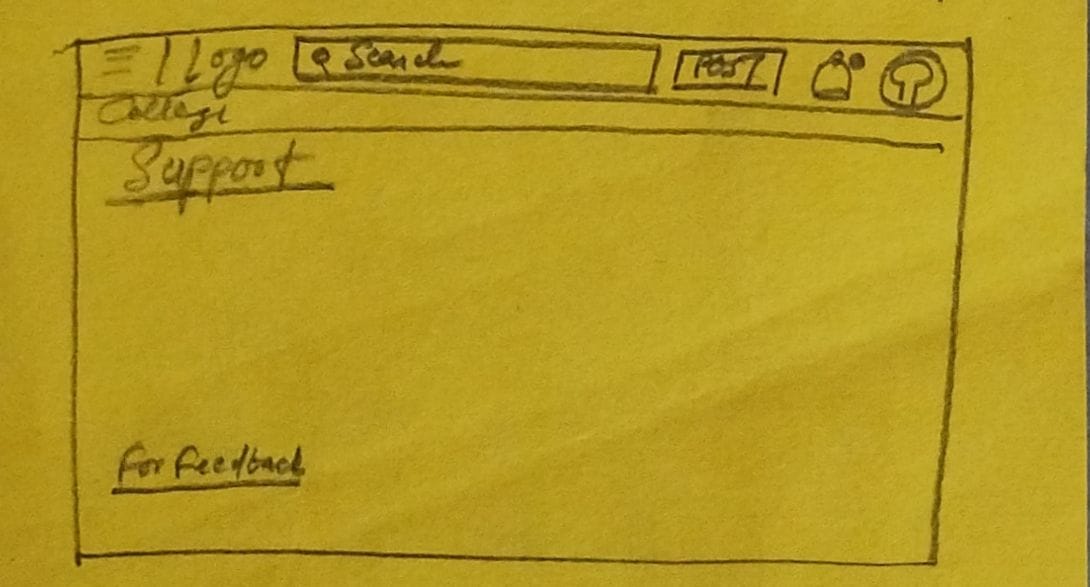 Logo
Search
POST
College
Support
For Feedback